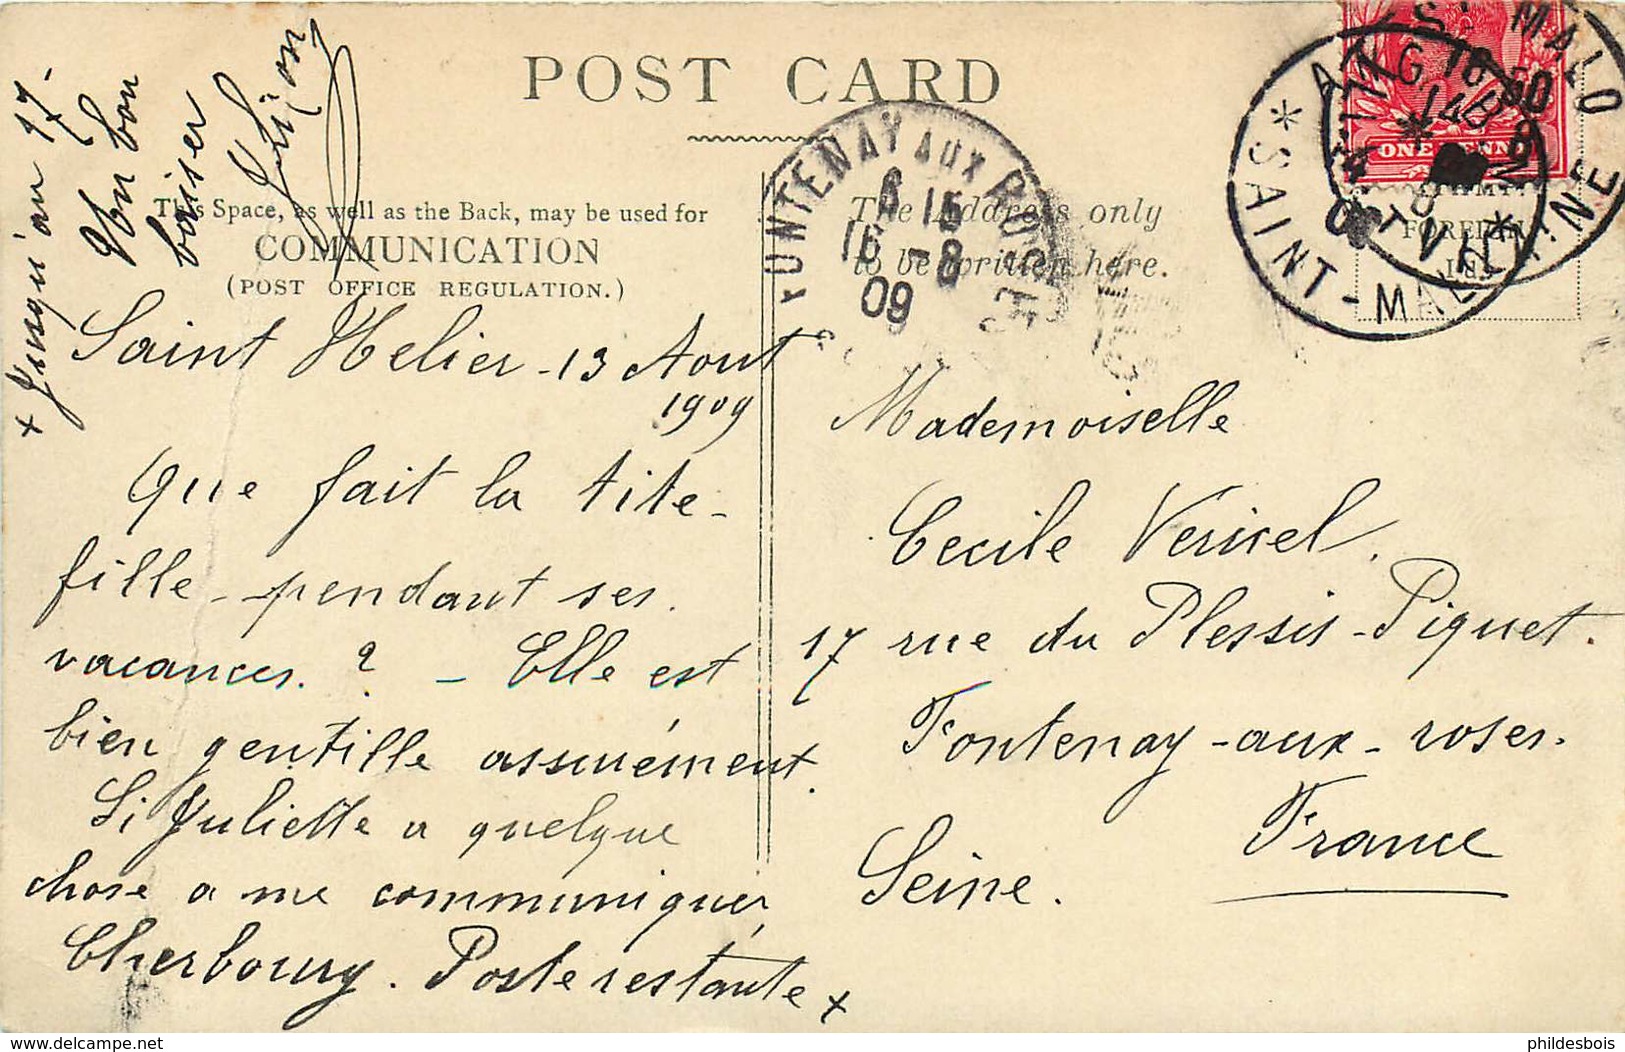 POST CARD
This Space, as well as the Back, may be used for
COMMUNICATION
(POST OFFICE REGULATION.)
The Address only
to be written here.
+ Jusqu'au 17-
Un bon
baiser
Saint Helier - 13 Aout
1909
Que fait la tite-
fille - pendant ses
vacances. ? - Elle est
bien gentille assurément.
Si Juliette a quelque
chose a me communiquer,
Cherbourg. Poste restante +
Mademoiselle
Cecile Vericel.
17 rue du Plessis-Piquet.
Fontenay-aux-roses.
Seine.
France
FONTENAY AUX ROSES
6 15
16 -8
09
ONE PENNY
ST MALO
SAINT-MALO
phildesbois